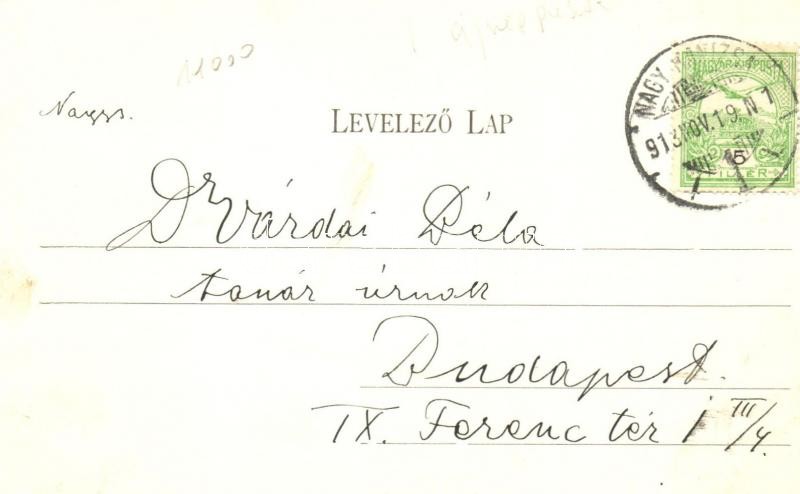 11000
NAGY KANIZSA
913 NOV. 19 N 1
MAGYAR KIR. POSTA
5
FILLÉR
Nagys.
LEVELEZŐ LAP
Dr Várdai Béla
tanár úrnak
Budapest.
IX. Ferenc tér 1 III/4.